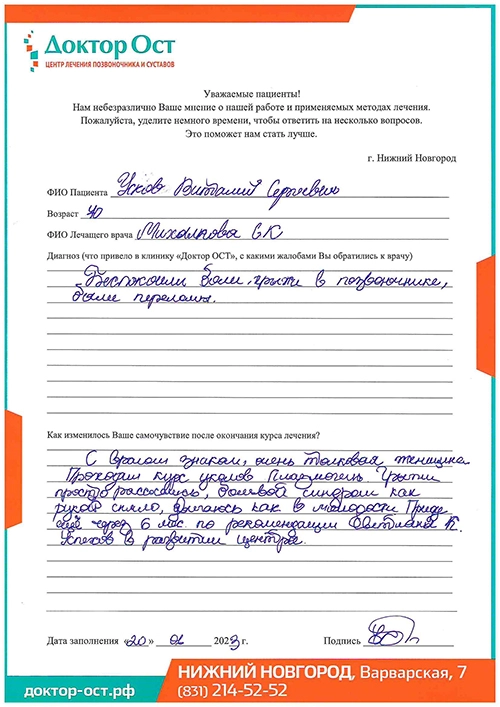 Доктор Ост
ЦЕНТР ЛЕЧЕНИЯ ПОЗВОНОЧНИКА И СУСТАВОВ
Уважаемые пациенты!
Нам небезразлично Ваше мнение о нашей работе и применяемых методах лечения.
Пожалуйста, уделите немного времени, чтобы ответить на несколько вопросов.
Это поможет нам стать лучше.
г. Нижний Новгород
ФИО Пациента Усков Виталий Сергеевич
Возраст 40
ФИО Лечащего врача Михалкова СК
Диагноз (что привело в клинику «Доктор ОСТ», с какими жалобами Вы обратились к врачу)
Беспокоили боли, грыжи в позвоночнике,
были переломы.
Как изменилось Ваше самочувствие после окончания курса лечения?
С врачом знаком, очень толковая женщина
Проходил курс уколов Плазмогель. Грыжи
просто рассосались, болевой синдром как
рукой сняло, двигаюсь как в молодости Приду
ещё через 6 мес. по рекомендации Светланы К.
Успехов в развитии центра.
Дата заполнения «20» 01 2023 г.
Подпись
доктор-ост.рф
НИЖНИЙ НОВГОРОД, Варварская, 7
(831) 214-52-52